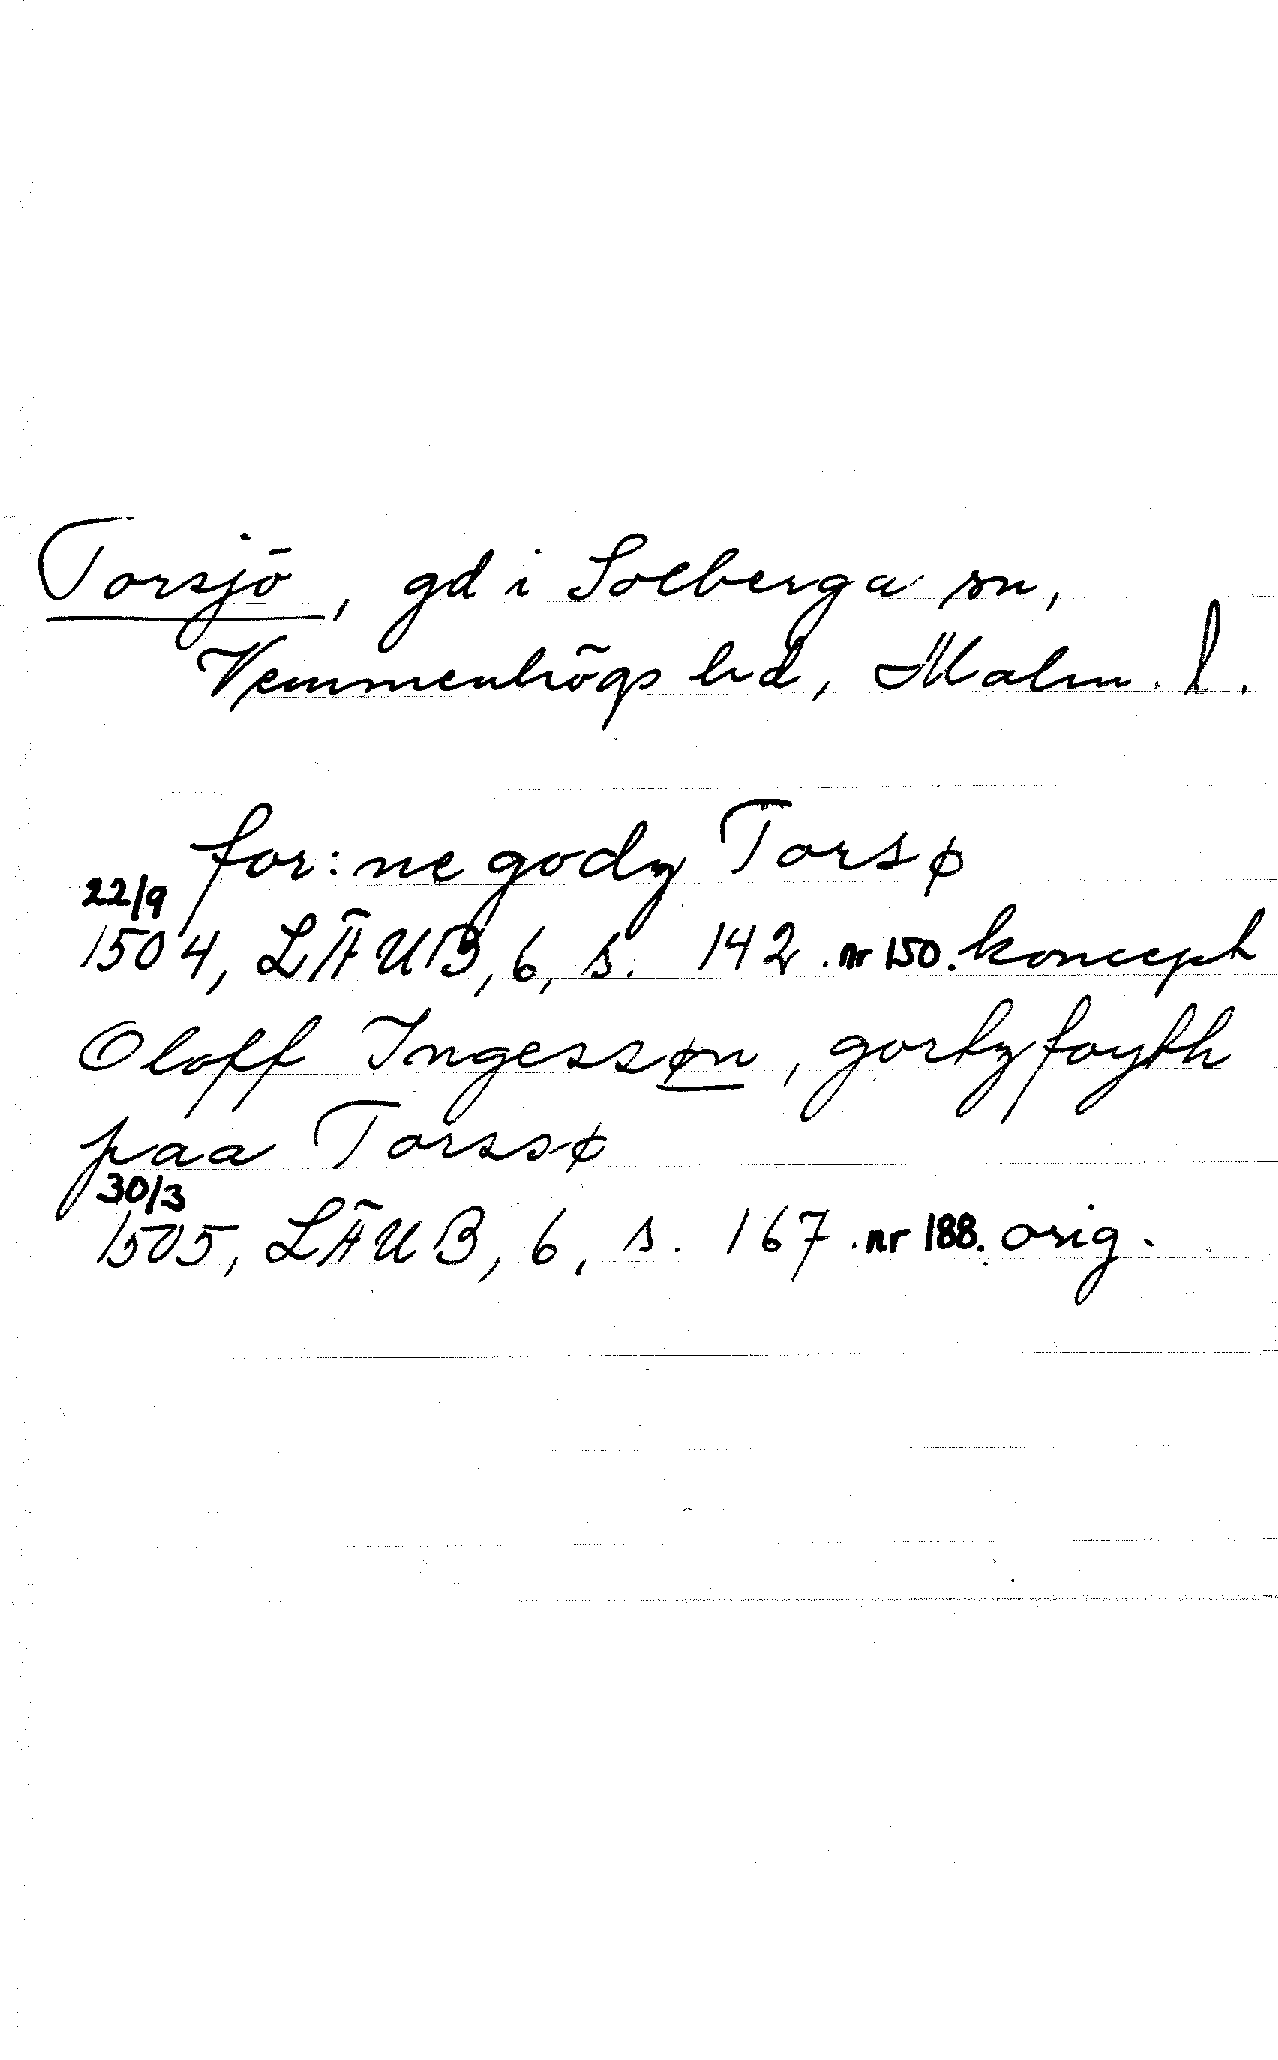 Torsjö, gd i Solberga sn,
Vemmenhögs hd, Malm. l.
for:ne godz Torsø
22/9
1504, LÄUB, 6, s. 142. nr 150. koncept
Oloff Ingessøn, gortzfoyth
paa Torssø
30/3
1505, LÄUB, 6, s. 167. nr 188. orig.